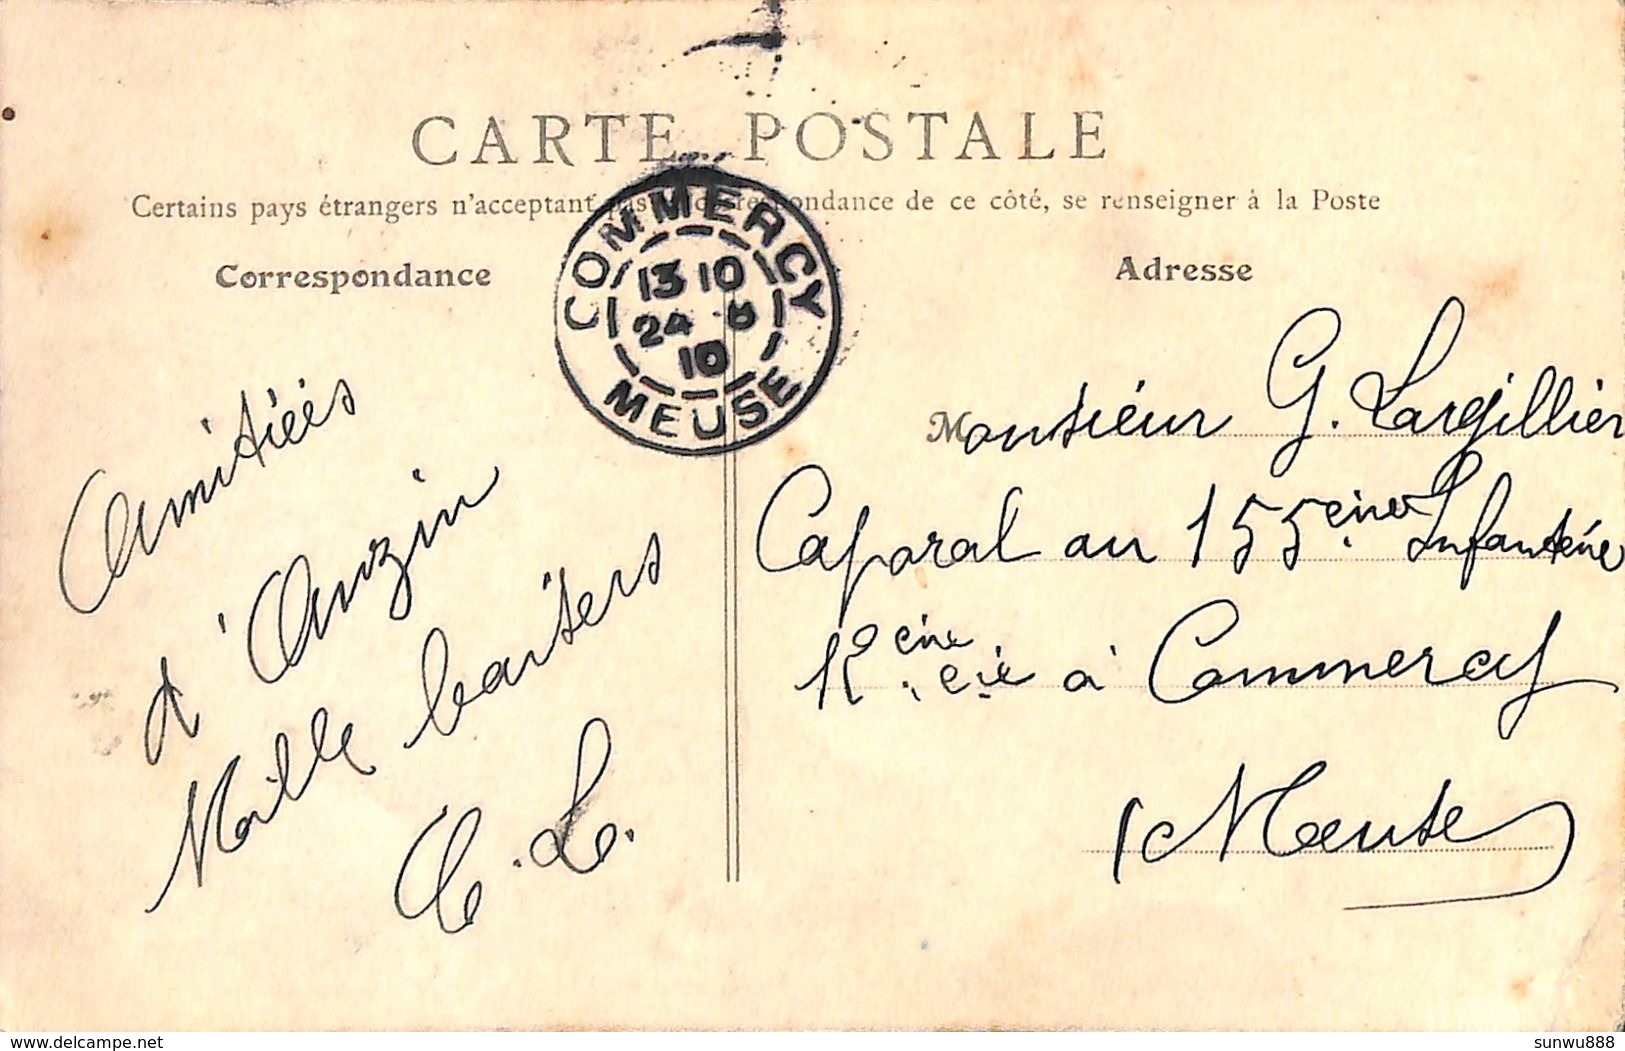 CARTE POSTALE
Certains pays étrangers n'acceptant pas la correspondance de ce côté, se renseigner à la Poste
Correspondance
Adresse
COMMERCY
13 10
24 8
10
MEUSE
Amitiées
d'Anzin
Mille baisers
C. L.
Monsieur G. Largillier
Caporal au 155ème Infanterie
12ème Cie à Commercy
(Meuse)
delcampe.net
sunwu888